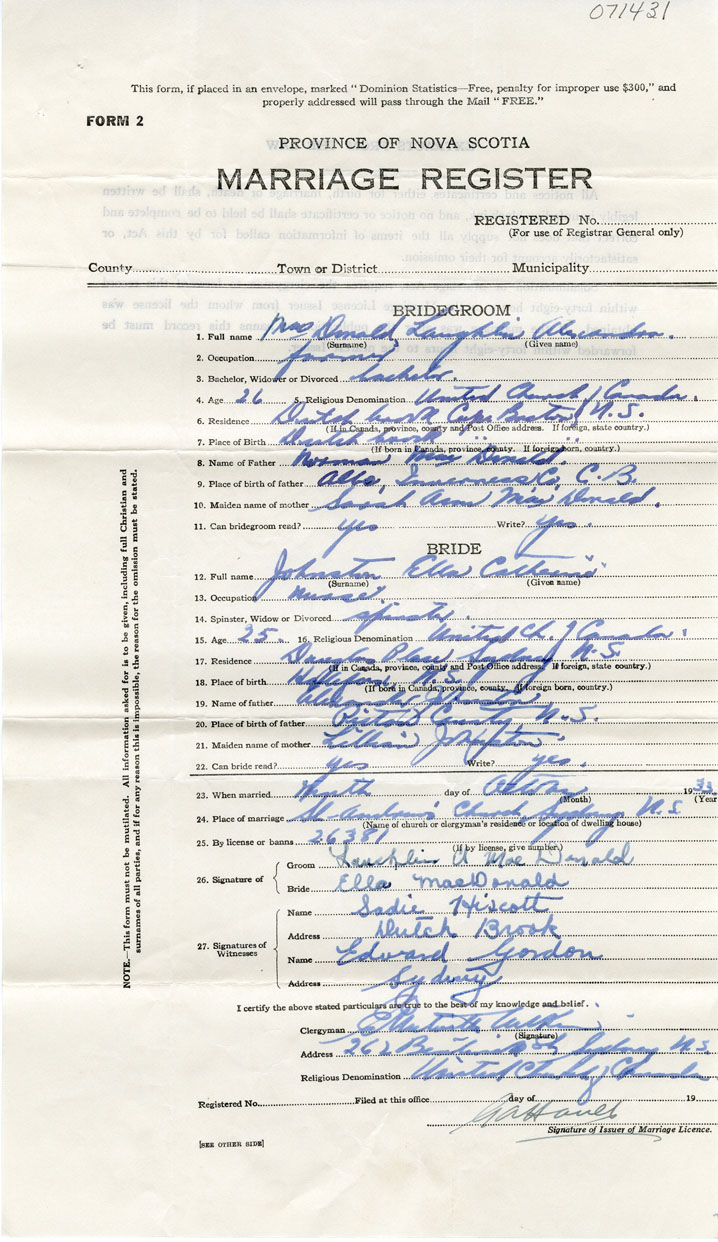 071431
This form, if placed in an envelope, marked "Dominion Statistics—Free, penalty for improper use $300," and
properly addressed will pass through the Mail "FREE."
FORM 2
PROVINCE OF NOVA SCOTIA
MARRIAGE REGISTER
REGISTERED No.
(For use of Registrar General only)
County Town or District Municipality
BRIDEGROOM
1. Full name Mac Donald Laughlin Alexander.
(Surname) (Given name)
2. Occupation farmer
3. Bachelor, Widower or Divorced bachelor.
4. Age 26 5. Religious Denomination United Church of Canada.
6. Residence Dutch brook Cape Breton N.S.
(If in Canada, province, county and Post Office address. If foreign, state country.)
7. Place of Birth Dutch brook " "
(If born in Canada, province, county. If foreign born, country.)
8. Name of Father Norman Mac Donald.
9. Place of birth of father Alba, Inverness Co, C.B.
10. Maiden name of mother Sarah Ann Mac Donald.
11. Can bridegroom read? yes Write? yes.
BRIDE
12. Full name Johnston Ella Catherine
(Surname) (Given name)
13. Occupation nurse
14. Spinster, Widow or Divorced spinster.
15. Age 25 16. Religious Denomination United Ch. of Canada.
17. Residence Douglas Place Sydney N.S.
(If in Canada, province, county and Post Office address. If foreign, state country.)
18. Place of birth N.S.
(If born in Canada, province, county. If foreign born, country.)
19. Name of father Johnston
20. Place of birth of father Pictou County N.S.
21. Maiden name of mother Lillian Johnston.
22. Can bride read? yes Write? yes.
23. When married day of October 1933
(Month) (Year
24. Place of marriage St Andrew's Church Sydney N.S
(Name of church or clergyman's residence or location of dwelling house)
25. By license or banns 26381
(If by license, give number.)
26. Signature of
Groom Laughlin A Mac Donald
Bride Ella MacDonald
27. Signatures of Witnesses
Name Sadie Hiscott
Address Dutch Brook
Name Edward Gordon
Address Sydney
I certify the above stated particulars are true to the best of my knowledge and belief.
Clergyman
(Signature)
Address 262 St Sydney N.S.
Religious Denomination United Church of Canada
Registered No. Filed at this office day of 19
Signature of Issuer of Marriage Licence.
[SEE OTHER SIDE]
NOTE.—This form must not be mutilated. All information asked for is to be given, including full Christian and
surnames of all parties, and if for any reason this is impossible, the reason for the omission must be stated.